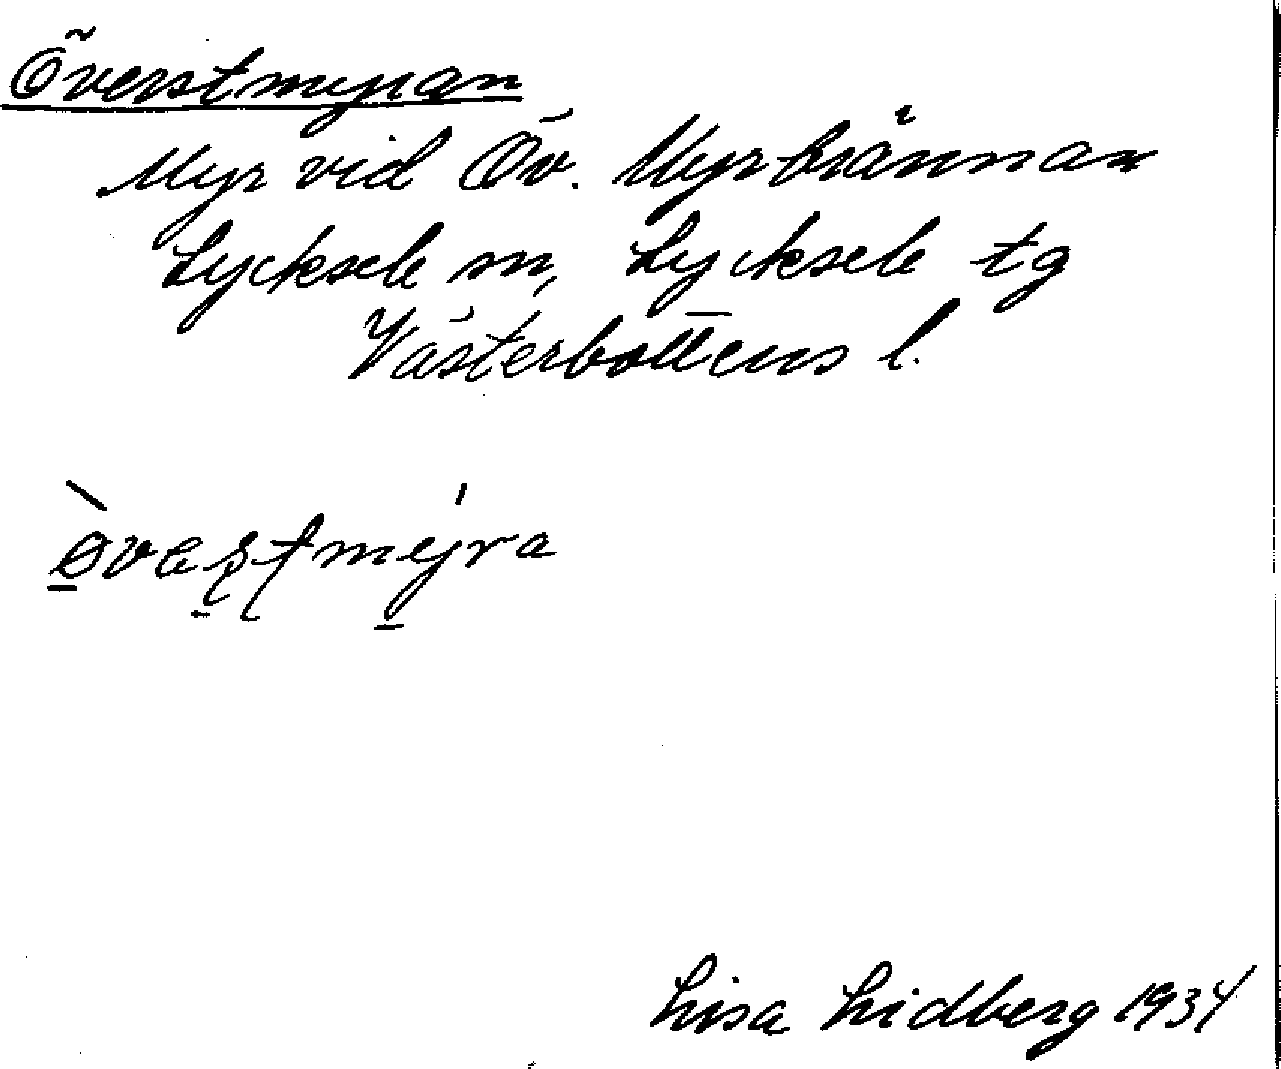 Överstmyran
Myr vid Öv. Myrbrännan
Lycksele sn, Lycksele tg
Västerbottens l.
òvаṣtmýra
Lisa Lidberg 1934